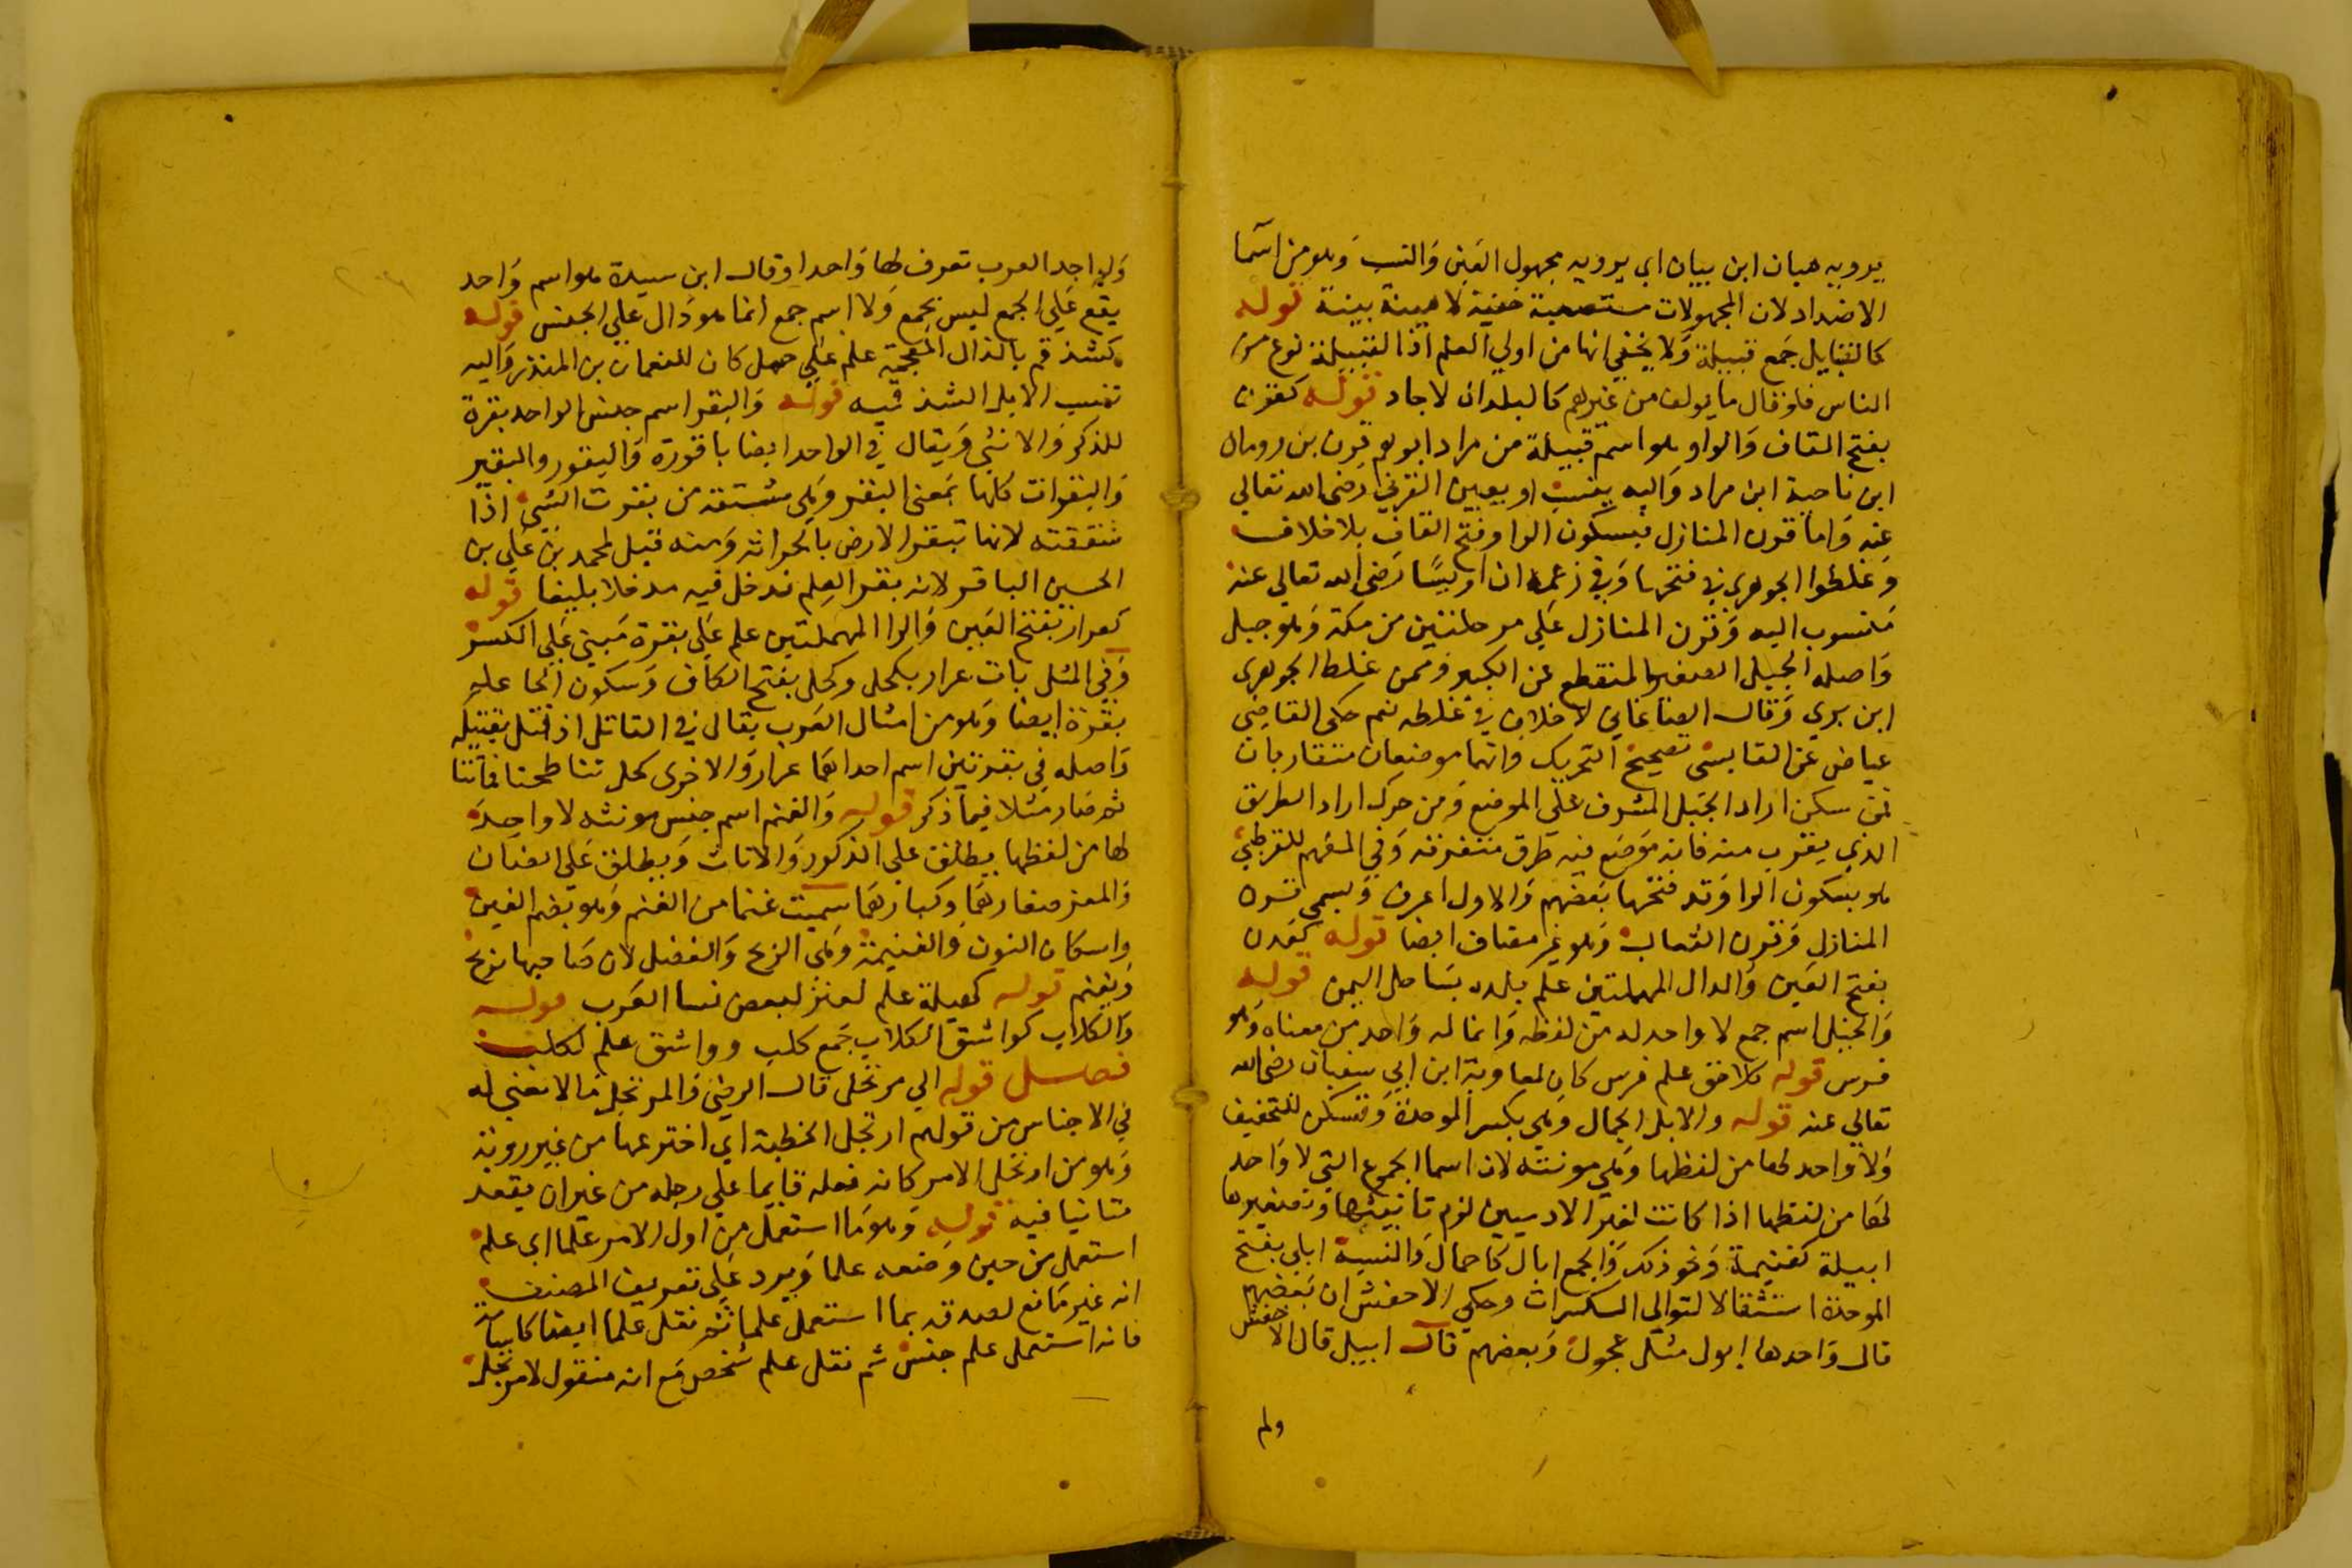 يرويه هيان ابن بيان اي يرويه مجهول العين والنسب وهو من اسما
الاضداد لان المجهولات مستصعبة خفية لا هينة بينة قوله
كالقبايل جمع قبيلة ولا يخفي انها من اولي العلم اذ القبيلة نوع من
الناس فلو قال ما يولف من غيرهم كالبلدان لاجاد قوله كقرن
بفتح القاف والواو هو اسم قبيلة من مراد ابوهم قرن بن رومان
ابن ناجية ابن مراد واليه ينسب اويس القرني رضي الله تعالي
عنه واما قرن المنازل فبسكون الرا وفتح القاف بلا خلاف
وغلطوا الجوهري في فتحها وفي زعمه ان اويسا رضي الله تعالي عنه
منسوب اليه وقرن المنازل علي مرحلتين من مكة وهو جبل
واصله الجبل الصغير المنقطع عن الكبير وممن غلط الجوهري
ابن بري وقال الصاغاني لا خلاف في غلطه نعم حكي القاضي
عياض عن القابسي تصحيح التحريك وانهما موضعان متقاربان
فمن سكن اراد الجبل المشرف علي الموضع ومن حرك اراد الطريق
الذي يقرب منه فانه موضع فيه طرق متفرقة وفي المفهم للقرطبي
هو بسكون الرا وقد فتحها بعضهم والاول اعرف ويسمي قرن
المنازل وقرن الثعالب وهو غير مضاف ايضا قوله كعدن
بفتح العين والدال المهملتين علم بلده بساحل اليمن قوله
والخيل اسم جمع لا واحد له من لفظه وانما له واحد من معناه وهو
فرس قوله كلاحق علم فرس كان لمعاوية ابن ابي سفيان رضي الله
تعالي عنه قوله والابل الجمال وهي بكسر الموحدة وتسكن للتخفيف
ولا واحد لها من لفظها وهي مونثه لان اسما الجموع التي لا واحد
لها من لفظها اذا كانت لغير الادميين لزم تانيثها وتصغيرها
ابيلة كغنيمة ونحو ذلك والجمع ابال كاحمال والنسبة ابلي بفتح
الموحدة استثقالا لتوالي الكسرات وحكي الاخفش ان بعضهم
قال واحدها ابول مثل عجول وبعضهم قال ابيل قال الاخفش
ولم
ولم اجد العرب تعرف لها واحدا وقال ابن سيدة هو اسم واحد
يقع علي الجمع ليس بجمع ولا اسم جمع انما هو دال علي الجنس قوله
كشذقم بالذال المعجمة علم علي جمل كان للنعمان بن المنذر واليه
تنسب الابل الشذقميه قوله والبقر اسم جنس الواحد بقرة
للذكر والانثي ويقال في الواحد ايضا باقورة والبيقور والبقير
والبقرات كلها بمعني البقر وهي مشتقه من بقرت الشيء اذا
شققته لانها تبقر الارض بالحراثه ومنه قيل لمحمد بن علي بن
الحسين الباقر لانه بقر العلم فدخل فيه مدخلا بليغا قوله
كعرار بفتح العين والرا المهملتين علم علي بقرة مبني علي الكسر
وفي المثل بات عرار بكحل وكحل بفتح الكاف وسكون الحا علم
بقرة ايضا وهو من امثال العرب يقال في القاتل اذ قتل بقتيله
واصله في بقرتين اسم احداهما عرار والاخري كحل تناطحتا فماتتا
ثم صار مثلا فيما ذكر قوله والغنم اسم جنس مونثه لا واحد
لها من لفظها يطلق علي الذكور والاناث ويطلق علي الضان
والمعز صغارهما وكبارهما سميت غنما من الغنم وهو بضم الغين
واسكان النون والغنيمة وهي الربح والفضل لان صاحبها يربح
ويغنم قوله كهيلة علم لعنز لبعض نسا العرب قوله
والكلاب كواشق الكلاب جمع كلب وواشق علم لكلب
فصل قوله الي مرتجل قال الرضي والمرتجل ما لا معني له
في الاجناس من قولهم ارتجل الخطبة اي اخترعها من غير روية
وهو من ارتجل الامر كانه فعله قايما علي رجله من غير ان يقعد
متانيا فيه قوله وهو ما استعمل من اول الامر علما اي علم
استعمل من حين وضعه علما ويرد علي تعريف المصنف
انه غير مانع لصدقه بما استعمل علما ثم نقل علما ايضا كاسامة
فانه استعمل علم جنس ثم نقل علم شخص مع انه منقول لا مرتجل